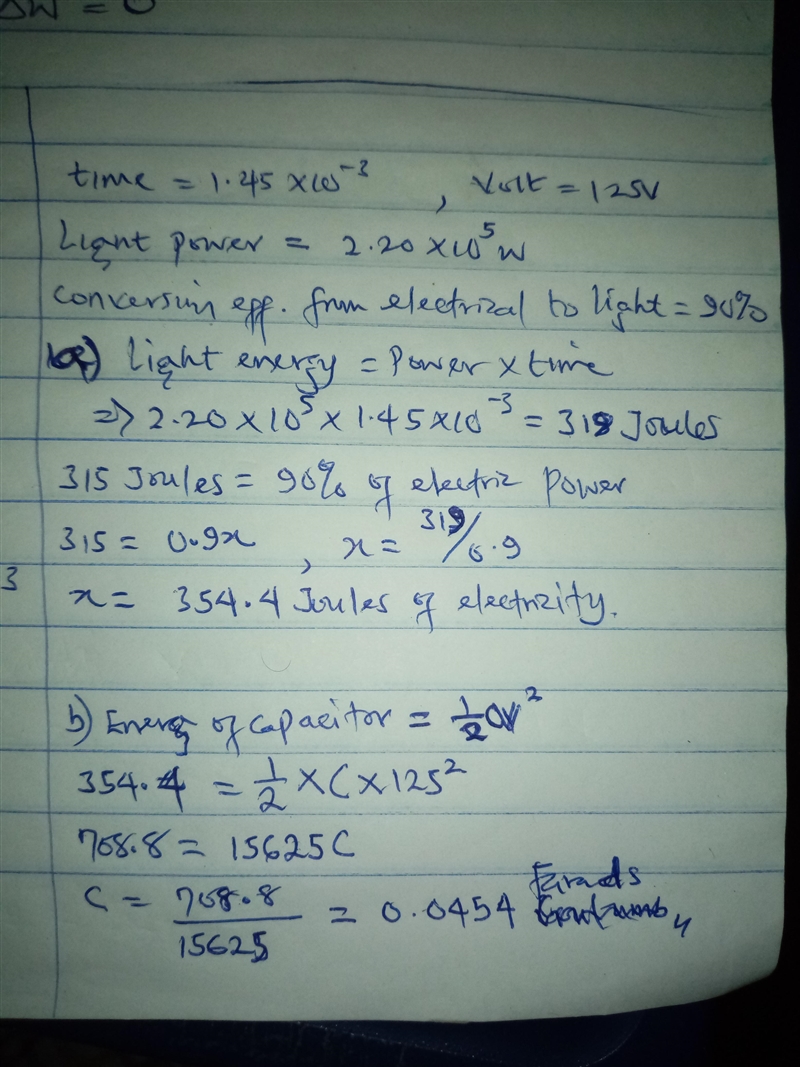 ΔW = 0
time = 1.45 x10⁻³ , Volt = 125V
Light power = 2.20 x10⁵ W
conversion eff. from electrical to light = 90%
a) light energy = Power x time
=> 2.20 x 10⁵ x 1.45 x10⁻³ = 319 Joules
315 Joules = 90% of electric power
315 = 0.9x , x = 319/0.9
3
x = 354.4 Joules of electricity.
b) Energy of capacitor = 1/2 CV²
354.4 = 1/2 x C x 125²
708.8 = 15625C
C = 708.8/15625 = 0.0454 Farads